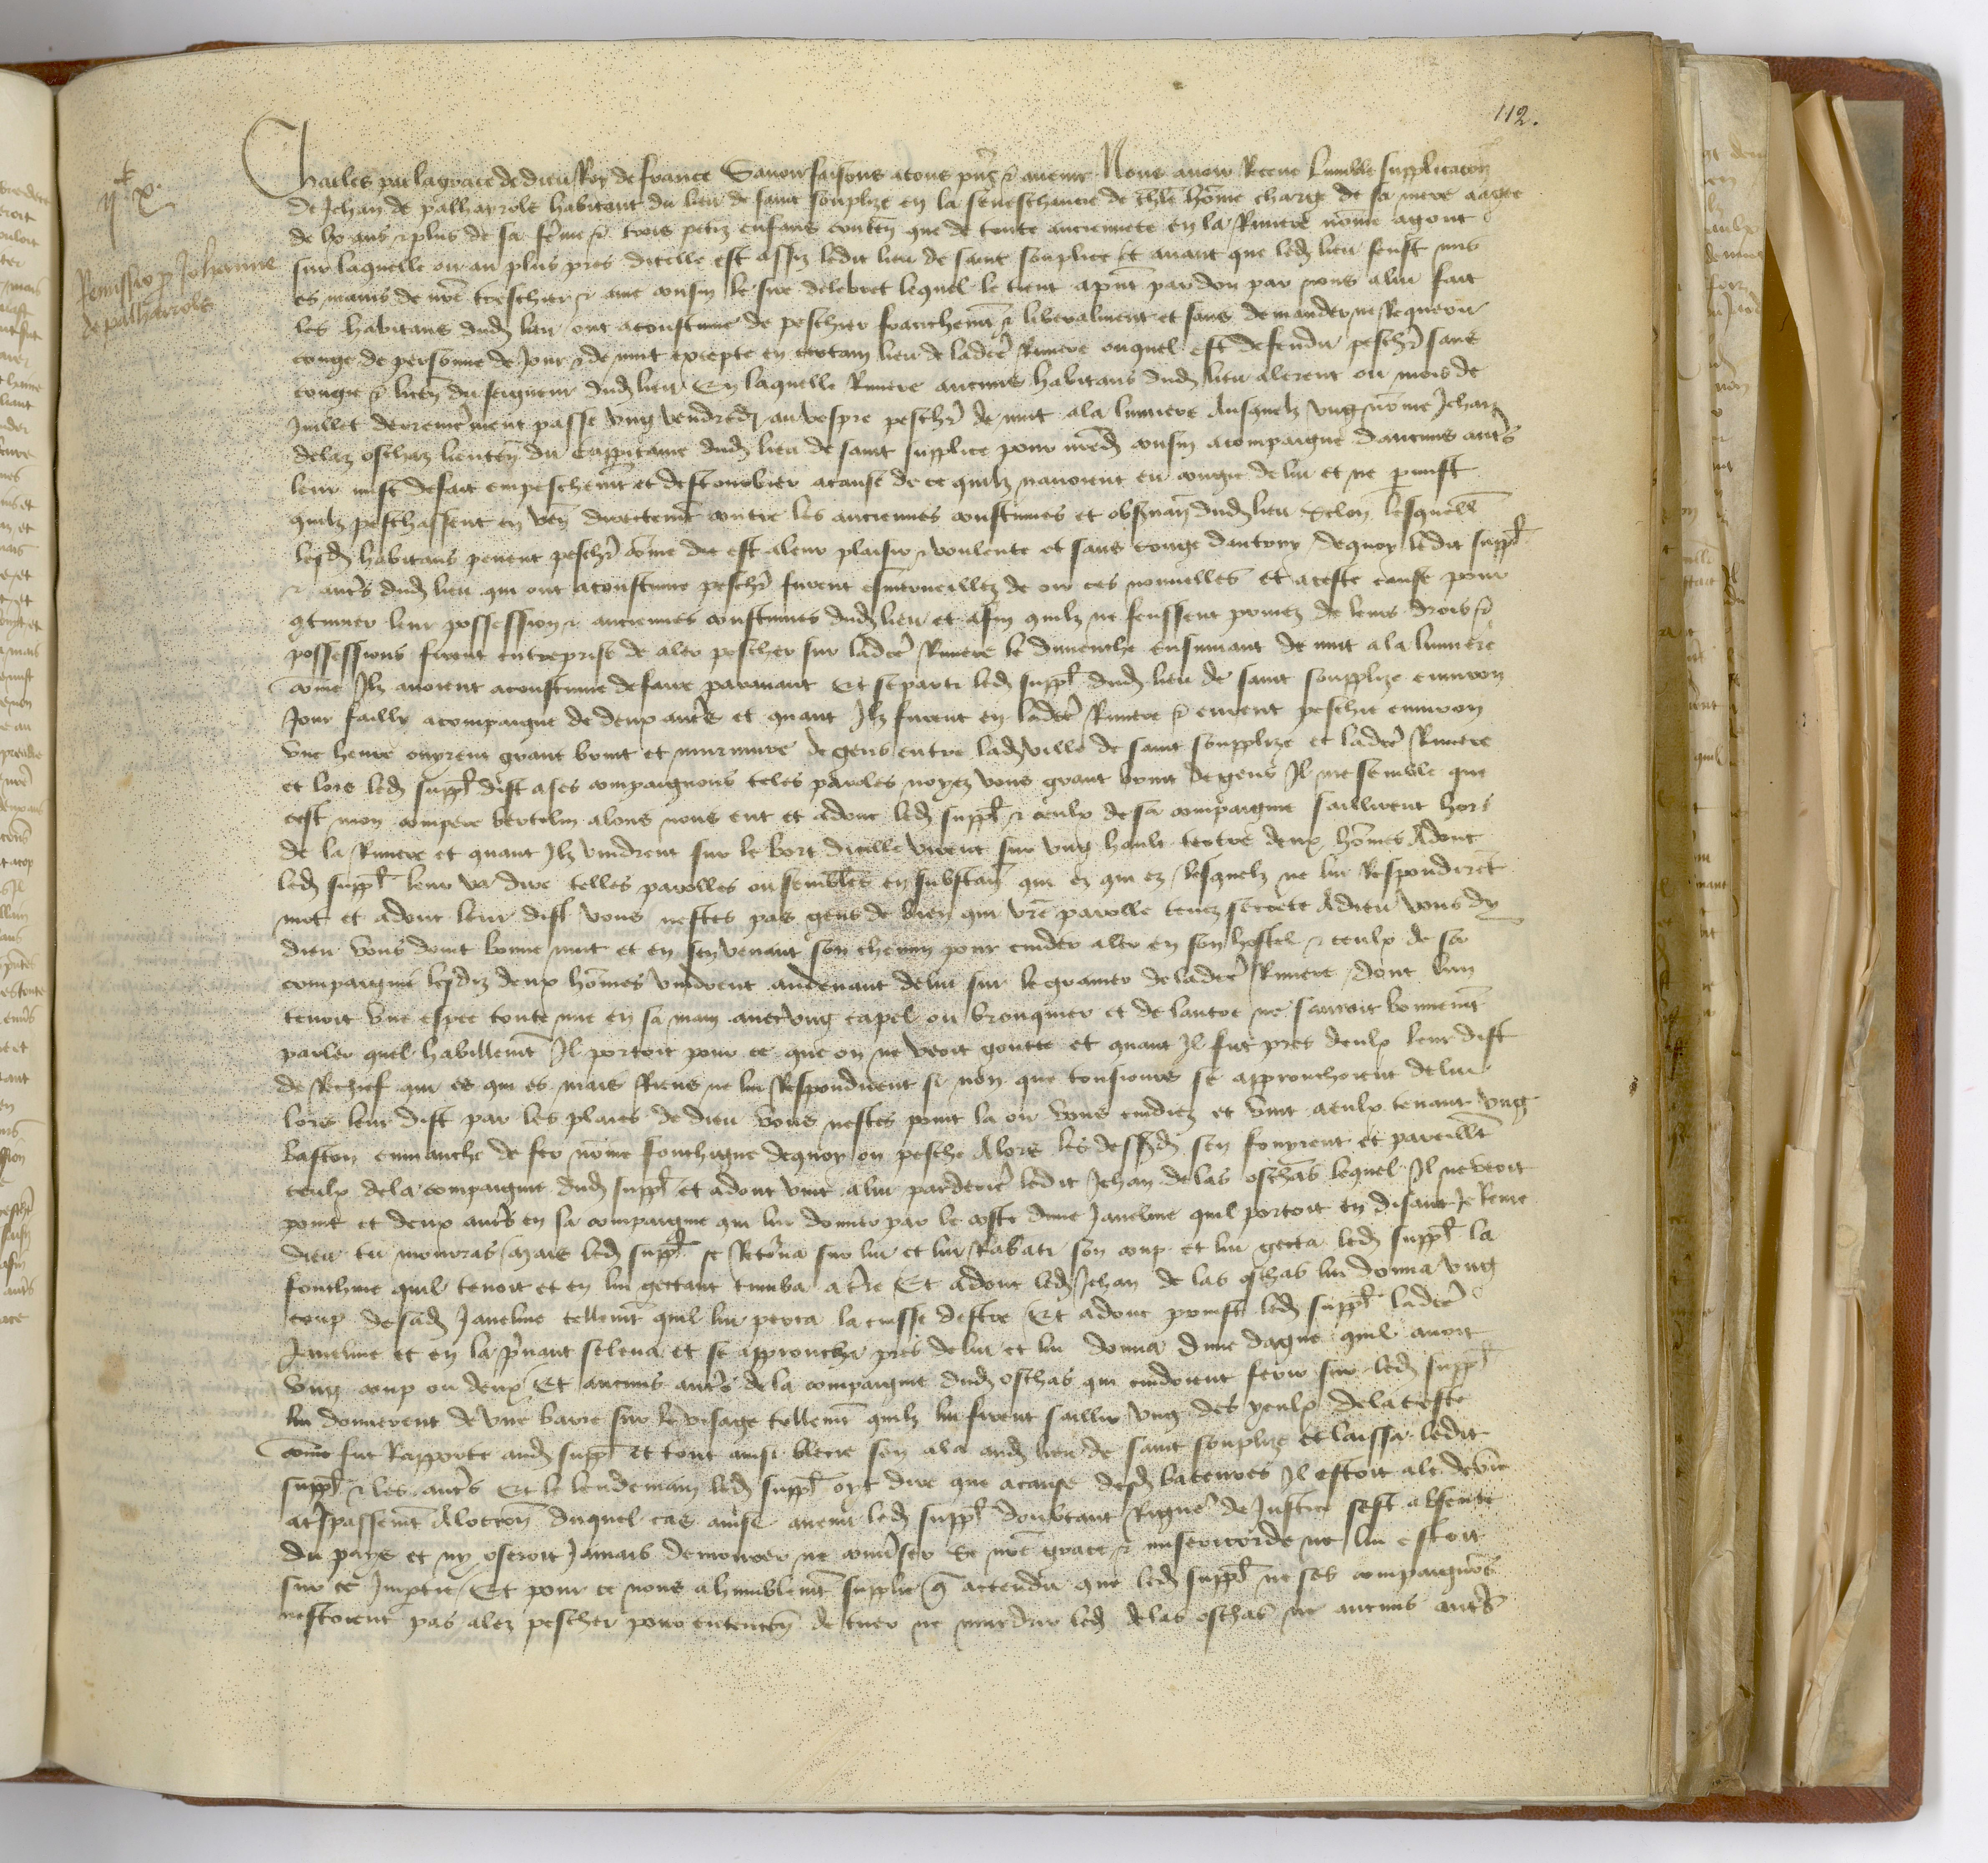 112.
Charles par la grace de dieu Roy de france Savoir faisons a tous pñs & avenir Nous avoir Receue lumble supplicacion
de Jehan de palharrole habitant du lieu de saint souplize en la seneschaucie de thle hōme charge de sa mere aagee
de lx ans & plus de sa fēme & trois petiz enfans conteñ que de toute anciennete en la Riviere nōme agout
sur laquelle ou au plus pres dicelle est assiz ledit lieu de saint souplice Et avant que led lieu feust mis
es mains de nrē treschier & ame cousin le sire delebret lequel le tient apñt par don par nous a lui fait
les habitans dud lieu ont acoustume de peschier franchemt & liberalment et sans demander ne Requerir
conge de personne de Jour & de nuit excepte en certain lieu de ladcē Riviere ouquel est defendu peschr sans
congie & liceñ du seigneur dud lieu En laquelle Riviere aucuns habitans dud lieu alerent ou mois de
Juillet derrenierement passe ung vendredi au vespre peschr de nuit a la lumiere Ausquelz ung nōme Jehan
delaz oschaz lieuteñ du cappitaine dud lieu de saint supplice pour nred cousin acompaigne daucuns autrs
leur mist de fait empeschemt et destourbier a cause de ce quilz navoient eu congie de lui et ne permist
quilz peschassent en veñ directemt contre les anciennes coustumes et observañ dud lieu selon lesquelles
lesd habitans pevent peschr cōme dit est a leur plaisir & voulente et sans conge dautruy / dequoy ledit suppl
& autrs dud lieu qui ont acoustume peschr furent esmerveilliez de oir ces nouvelles et a ceste cause pour
gtinuer leur possession & anciennes coustumes dud lieu et afin quilz ne feussent privez de leurs drois &
possessions firent entreprise de aler pescher sur ladcē Riviere le dimenche ensuivant de nuit a la lumiere
cōme Ilz avoient acoustume de faire paravant Et se parti led suppl dud lieu de saint souplize environ
Jour failly acompaigne de deux autrs et quant Ilz furent en ladcē Riviere & eurent peschie environ
une heure ouyrent grant bruit et murmure de gens entre lad ville de saint souplize et ladcē Riviere
et lors led suppl dist a ses compaignons teles paroles noyez vous grant bruit de gens Il me semble que
cest mon compere bertelin alons nous ent et adonc led suppl & ceulx de sa compaignie saillirent hors
de la Riviere et quant Ilz vindrent sur le bort dicelle virent sur ung hault tertre deux hōmes Adonc
led suppl leur va dire telles parolles ou sembles en substañ qui ez qui ez / lesquelz ne lui Respondiret
mot et adonc leur dist vous nestes pas gens de bien qui vrē parolle tenez secrete Adieu vous dy
dieu vous doint bonne nuit et en sen venant son chemin pour cuider aler en son hostel & ceulx de sa
compaignie lesdiz deux hōmes vindrent audevant de lui sur le gravier de ladcē Riviere / dont lun
tenoit une espee toute nue en sa main avec ung tapel ou bronquier et de lautre ne sauroit bonnemt
parler quel habillemt Il portoit pour ce que on ne veoit goutte et quant Il fut pres deulx leur dist
de Rechief qui es qui es mais Riens ne lui Respondirent si non que tousiours se approuchoient de lui
lors leur dist par les plaies de dieu vous nestes point la ou vous cuidiez et vint a eulx tenant ung
baston enmanche de fer nōme fouchigne dequoy on pesche Alors les dessd sen fouyrent et pareillt
ceulx de la compaignie dud suppl et adonc vint a lui par derriere ledit Jehan de las oschas lequel Il ne veoit
point et deux autrs en sa compaignie qui lui donna par le coste dune Javeline quil portoit en disant Je Renie
dieu tu mourras / mais led suppl se Retōrna sur lui et lui Rabati son coup et lui gecta led suppl la
fouchine quil tenoit et en lui gectant tumba a tre Et adonc led Jehan de las oschas lui donna ung
coup de sad Javeline tellemt quil lui perca la cuisse destre Et adonc print led suppl ladcē
Javeline et en la prnant se leva et se approucha pres de lui et lui donna dune dague quil avoit
ung coup ou deux Et aucuns autrs de la compaignie dud oschas qui cuidoient ferir sur led suppl
lui donnerent de une barre sur le visage tellemt quilz lui firent saillir ung des yeulx de la teste
cōme fut Rapporte aud suppl et tout ainsi blecie sen ala aud lieu de saint souplize et laissa ledit
suppl & les autrs Et le lendemain led suppl oyt dire que a cause desd bateures Il estoit ale de vie
a trspassemt A loccon duquel cas ainsi avenu led suppl doubtant Rigueʳ de Justice sest absente
du pays et ny oseroit Jamais demourer ne converser se nrē grace & misericorde ne lui estoit
sur ce Imptie / Et pour ce nous a humblemt supplie q attendu que led suppl ne ses compaignōs
nestoient pas alez pescher pour entencion de tuer ne murdrir led de las oschas ne aucuns autrs
Remissio p Johanne
de palharrole